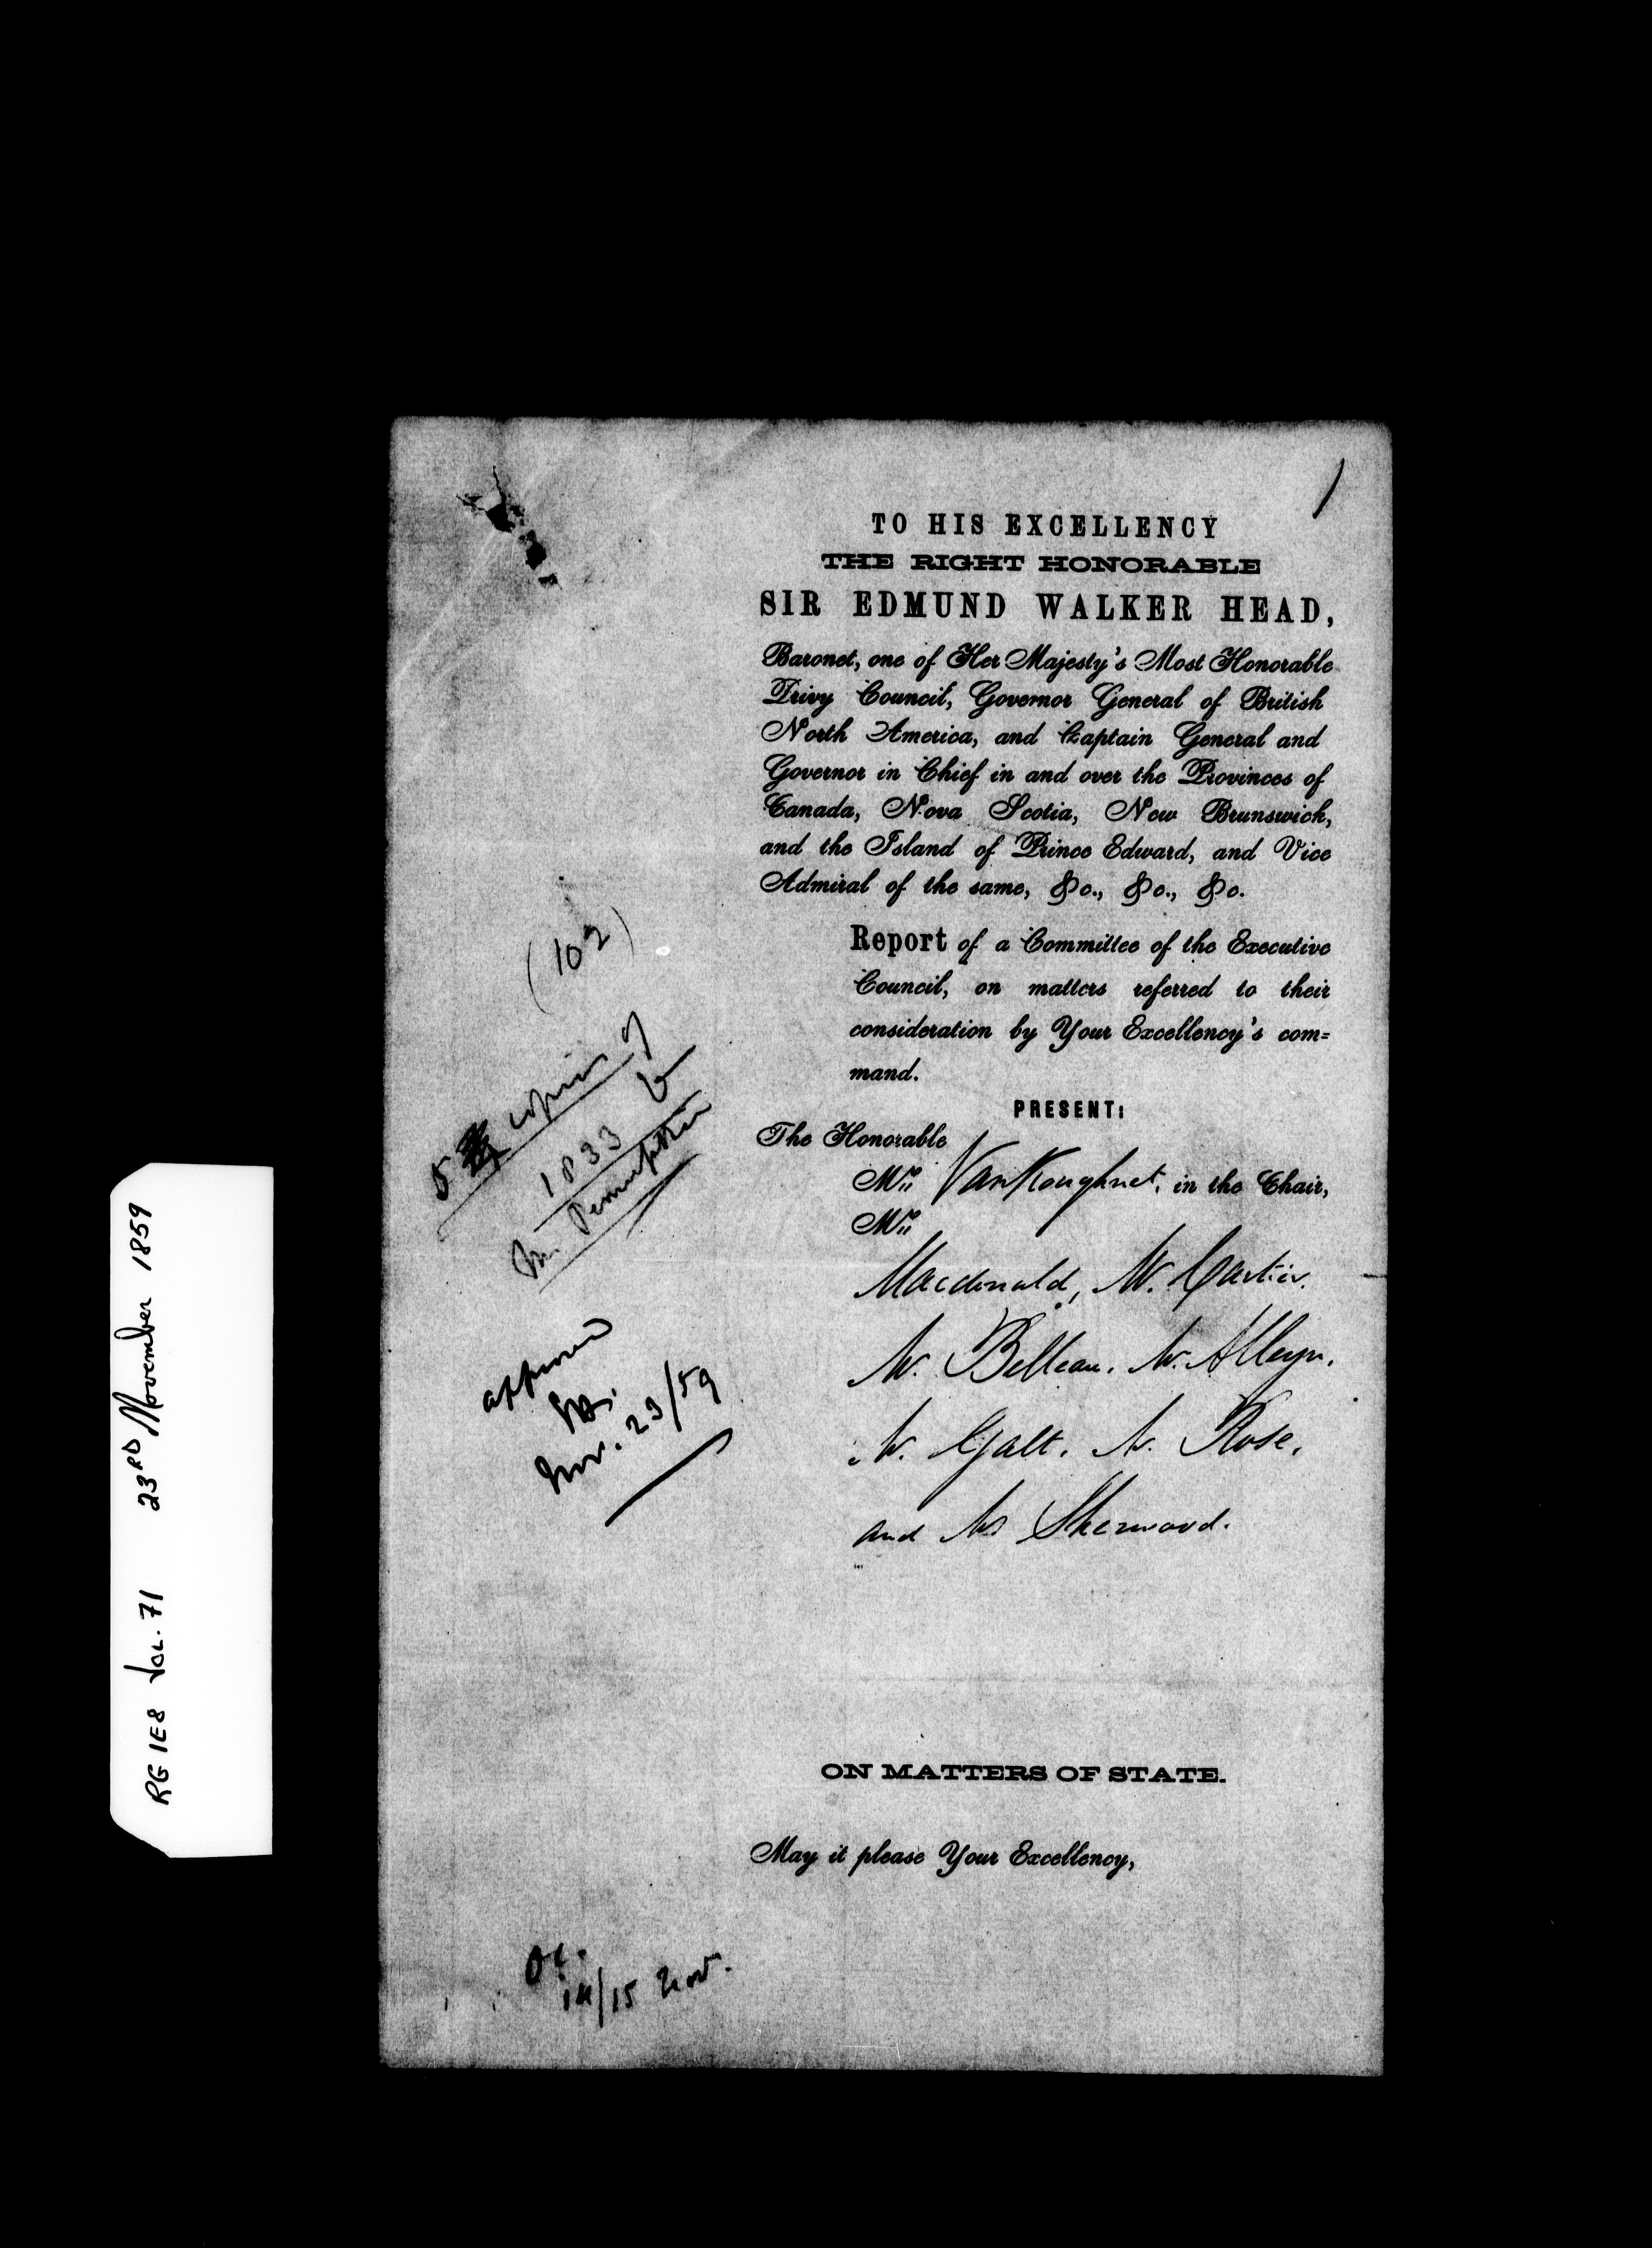 RG 1E8 Vol. 71 23RD November 1859
TO HIS EXCELLENCY
THE RIGHT HONORABLE
SIR EDMUND WALKER HEAD,
Baronet, one of Her Majesty's Most Honorable
Privy Council, Governor General of British
North America, and Captain General and
Governor in Chief in and over the Provinces of
Canada, Nova Scotia, New Brunswick,
and the Island of Prince Edward, and Vice
Admiral of the same, &c., &c., &c.
Report of a Committee of the Executive
Council, on matters referred to their
consideration by Your Excellency's com=
mand.
PRESENT:
The Honorable
Mr. VanKoughnet, in the Chair,
Mr.
Macdonald, Mr. Cartier.
Mr. Belleau. Mr. Alleyn.
Mr. Galt. Mr. Rose.
and Mr Sherwood.
ON MATTERS OF STATE.
May it please Your Excellency,
(102)
5 copies of
1833
Mr.
approved
Nov. 23/59
14/15 Nov.